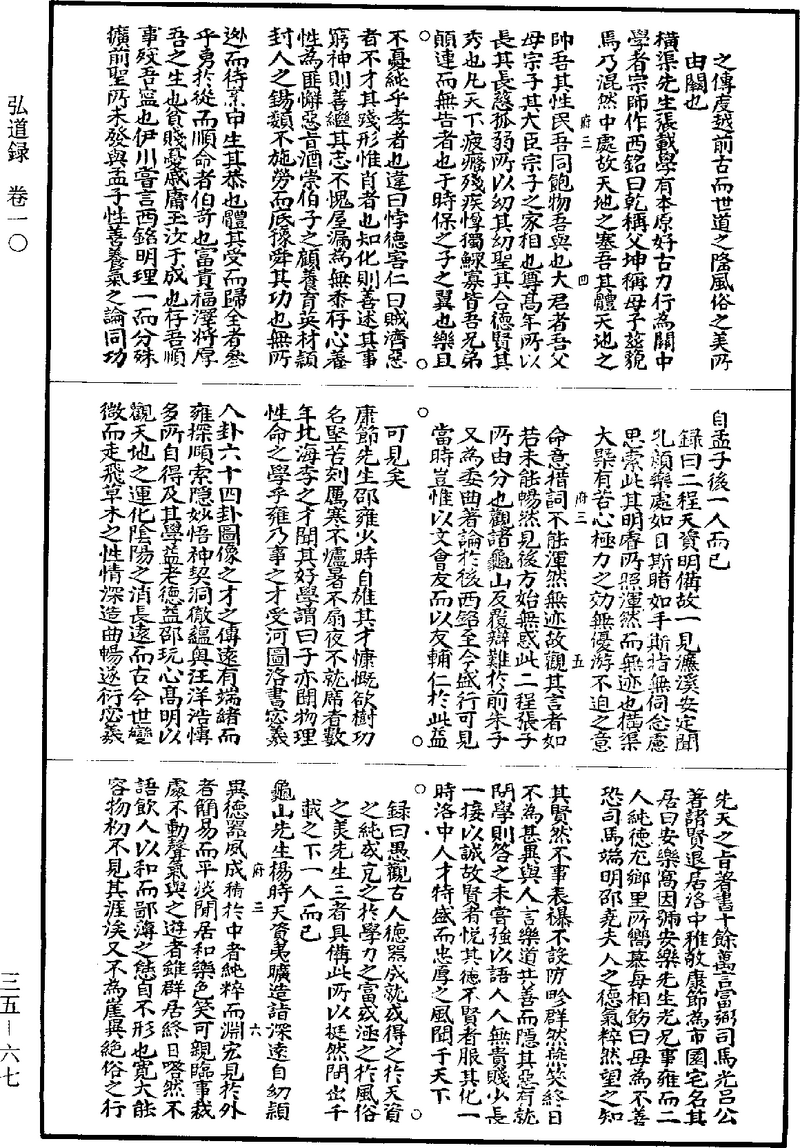 之傳度越前古而世道之隆風俗之美所
由關也
橫渠先生張載學有本原好古力行為關中
學者宗師作西銘曰乾稱父坤稱母子茲貌
馬乃混然中處故天地之塞吾其體天地之
府三 四
帥吾其性民吾同飽物吾與也大君者吾父
母宗子其大臣宗子之家相也尊高年所以
長其長慈孤弱所以幼其幼聖其合德賢其
秀也凡天下疲癃殘疾惸獨鰥寡皆吾兄弟
顛連而無告者也于時保之子之翼也樂且
不憂純乎孝者也違曰悖德害仁曰賊濟惡
者不才其踐形惟肖者也知化則善述其事
窮神則善繼其志不愧屋漏為無忝存心養
性為匪懈惡旨酒崇伯子之顧養育英材潁
封人之錫類不施勞而底豫舜其功也無所
逃而待烹申生其恭也體其受而歸全者參
乎勇於從而順命者伯奇也富貴福澤將厚
吾之生也貧賤憂戚庸玉汝于成也存吾順
事歿吾寧也伊川嘗言西銘明理一而分殊
擴前聖所未發與孟子性善養氣之論同功
自孟子後一人而已
錄曰二程天資明備故一見濂溪安定聞
孔顏樂處如日斯睹如手斯指無伺念慮
思索此其明睿所照渾然而無迹也橫渠
大槩有苦心極力之効無優游不迫之意
府三 五
命意措詞不能渾然無迹故觀其言者如
若未能暢然見後方始無惑此二程張子
所由分也觀諸龜山反覆辯難於前朱子
又為委曲著論於後西銘至今盛行可見
當時豈惟以文會友而以友輔仁於此益
可見矣
康節先生邵雍少時自雄其才慷慨欲樹功
名堅苦刻厲寒不爐暑不扇夜不就席者數
年北海李之才聞其好學謂曰子亦聞物理
性命之學乎雍乃事之才受河圖洛書宓羲
八卦六十四卦圖像之才之傳遠有端緒而
雍探賾索隱妙悟神契洞徹蘊奧汪洋浩博
多所自得及其學益老德益邵玩心高明以
觀天地之運化陰陽之消長遠而古今世變
微而走飛草木之性情深造曲暢遂衍宓羲
先天之旨著書十餘萬言富弼司馬光呂公
著諸賢退居洛中雅敬康節為市園宅名其
居曰安樂窩因號安樂先生光兄事雍而二
人純德尤鄉里所嚮慕每相飭曰毋為不善
恐司馬端明邵堯夫人之德氣粹然望之知
其賢然不事表襮不設防畛群然燕笑終日
不為甚異與人言樂道其善而隱其惡有就
問學則答之未嘗強以語人人無貴賤少長
一接以誠故賢者悅其德不賢者服其化一
時洛中人才特盛而忠厚之風聞于天下
錄曰愚觀古人德器成就或得之於天資
之純或充之於學力之富或涵之於風俗
之美先生三者具備此所以挺然間出千
載之下一人而已
龜山先生楊時天資夷曠造詣深遠自幼穎
府三 六
異德器夙成積於中者純粹而淵宏見於外
者簡易而平淡閒居和樂色笑可親臨事裁
處不動聲氣與之遊者雖群居終日嗒然不
語飲人以和而鄙薄之態自不形也寬大能
容物初不見其涯涘又不為崖異絕俗之行
弘道録 卷一〇
三五—六七